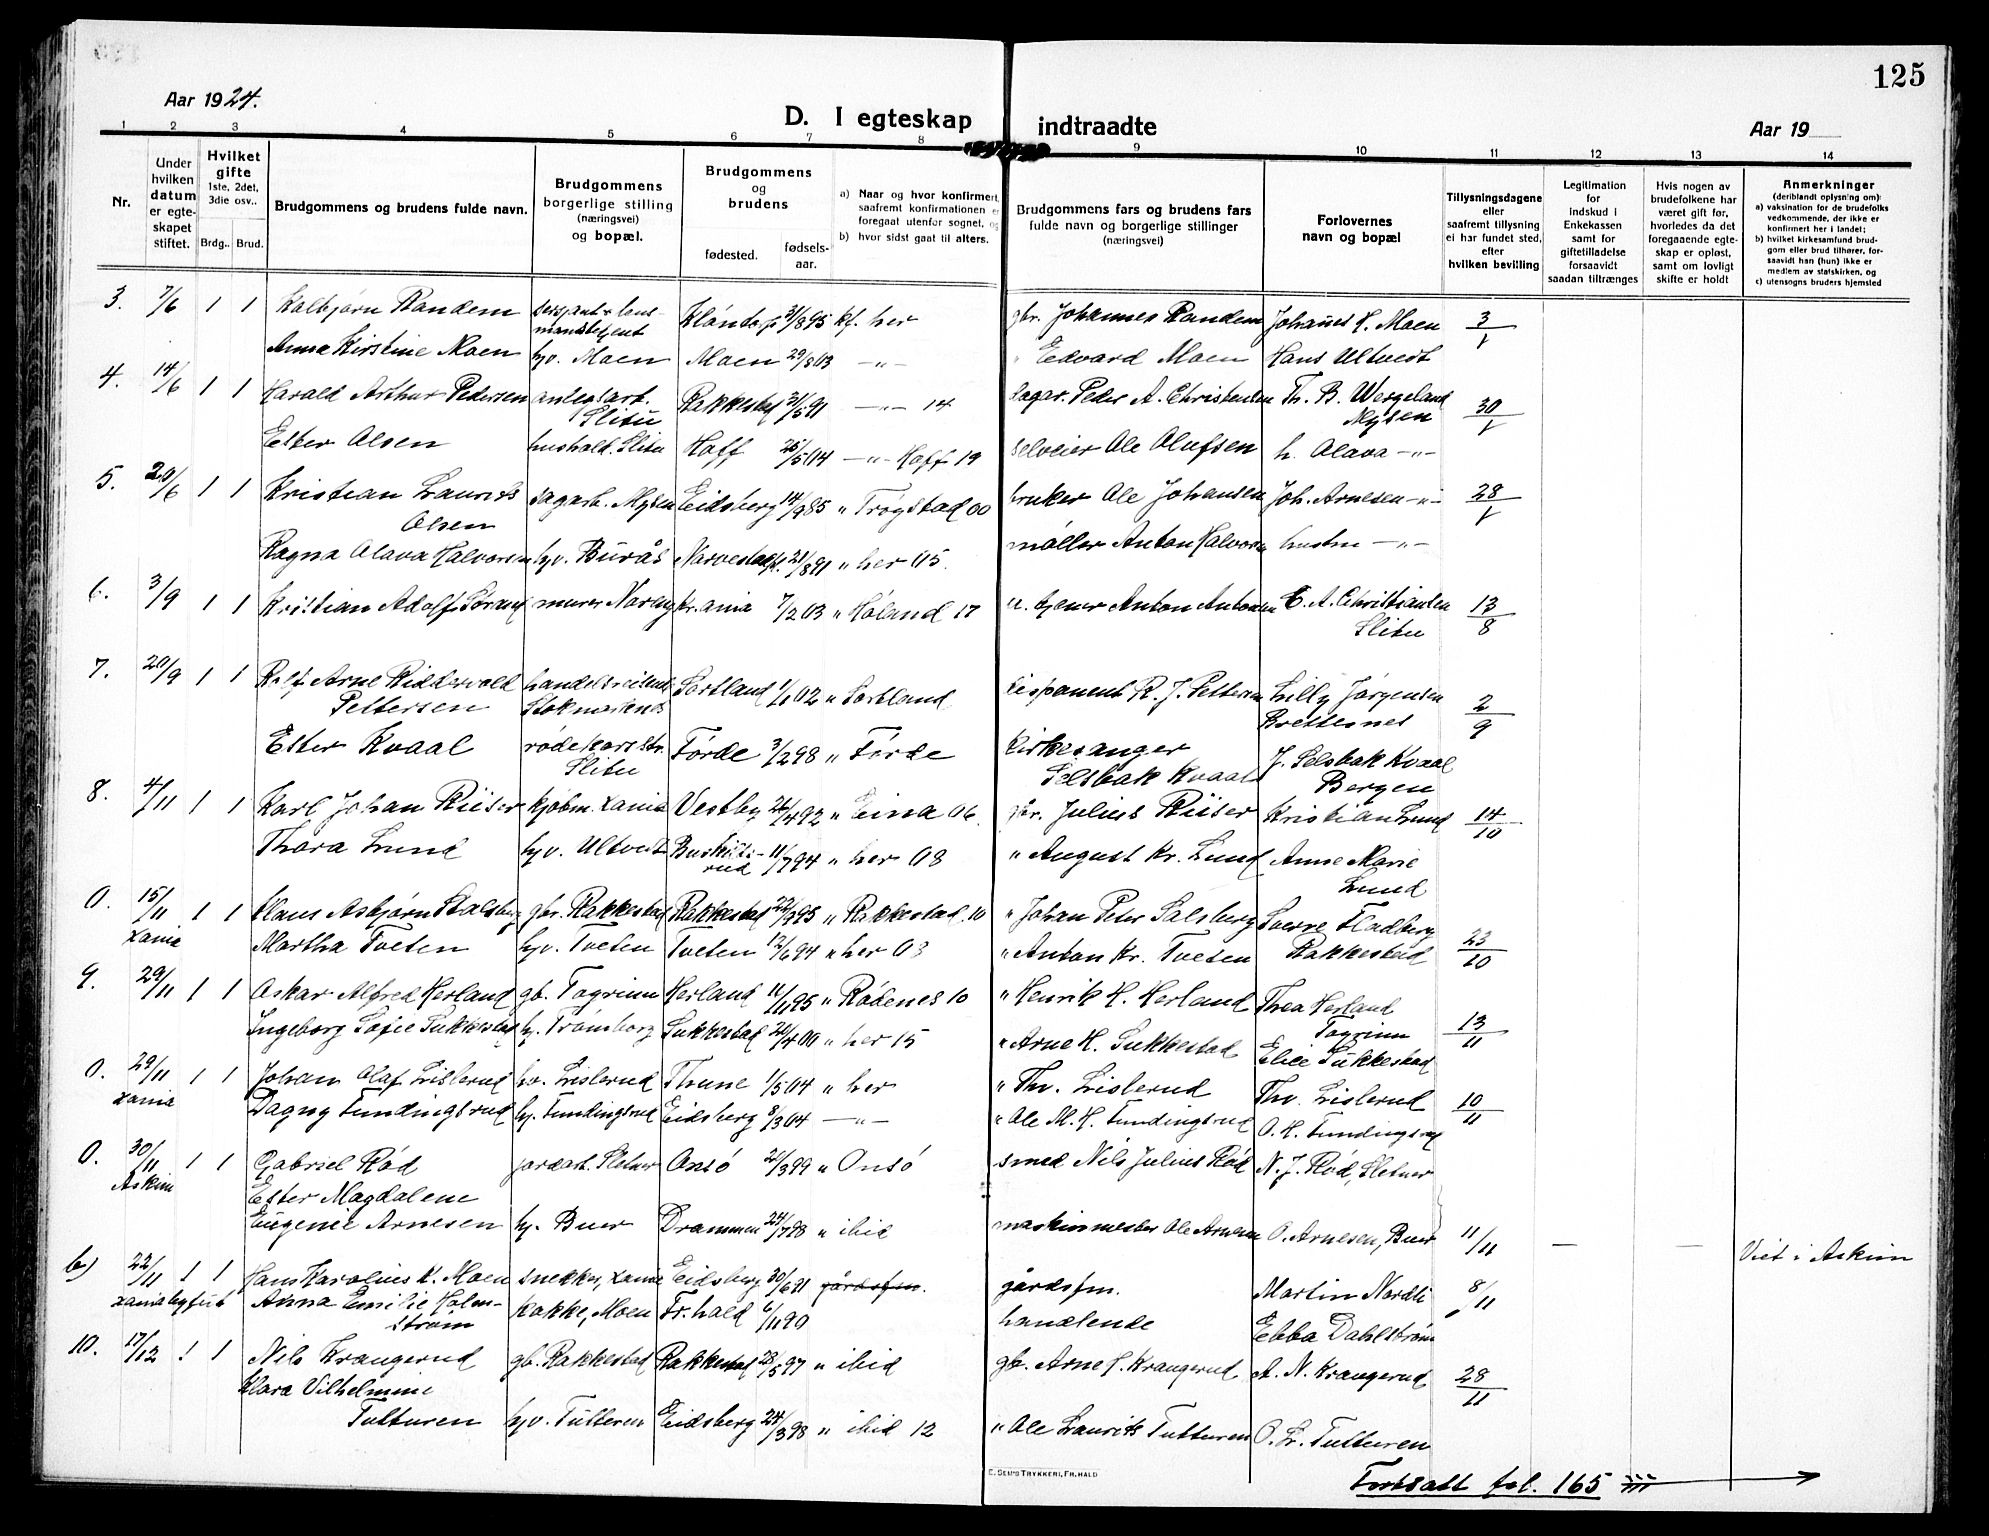 125
Aar 1924.
D. I egteskap indtraadte
Aar 19
1 2 3 4 5 6 7 8 9 10 11 12 13 14
Nr.
Under hvilken datum er egteskapet stiftet.
Hvilket gifte 1ste, 2det, 3die osv..
Brdg.. Brud.
Brudgommens og brudens fulde navn.
Brudgommens borgerlige stilling (næringsvei) og bopæl.
Brudgommens og brudens
fødested. fødselsaar.
a) Naar og hvor konfirmert, saafremt konfirmationen er foregaat utenfor sognet, og
b) hvor sidst gaat til alters.
Brudgommens fars og brudens fars fulde navn og borgerlige stillinger (næringsvei)
Forlovernes navn og bopæl
Tillysningsdagene eller saafremt tillysning ei har fundet sted, efter hvilken bevilling
Legitimation for Indskud i Enkekassen samt for giftetilladelse forsaavidt saadan tiltrænges
Hvis nogen av brudefolkene har været gift før, hvorledes da det foregaaende egteskap er opløst, samt om lovligt skifte er holdt
Anmerkninger (deriblandt oplysning om: a) vaksination for de brudefolks vedkommende, der ikke er konfirmert her i landet; b) hvilket kirkesamfund brudgom eller brud tilhører, forsaavidt han (hun) ikke er medlem av statskirken, og c) utensogns bruders hjemsted
3. 7/6 1 1 Kolbjørn Randem sersjant & lensmandsbetjent 31/8 95 kf. her gbr. Johannes Randem Johannes H. Moen 3/
Anna Kirstine Moen hjv. Moen Moen 29/8 03 -"- " Edvard Moen Hans Ultvedt
4. 14/6 1 1 Harald Arthur Pedersen anlegsarb. Slitu Rakkestad 31/5 91 -"- 14 sagar. Peder A. Christensen Th. B. Wergeland Mysen 30/
Ester Olsen hushald. Slitu Hoff 25/5 04 -"- Hoff 19 selveier Ole Olufsen h. Olava -"-
5. 20/6 1 1 Kristian Laurits Olsen sagarb. Mysen Eidsberg 14/9 85 " Trøgstad 00 bruker Ole Johansen Joh. Arnesen -"- 28/
Ragna Olava Halvorsen hjv. Burås 21/8 91 " her 05. møller Anton Halvorsen hustru -"-
6. 3/9 1 1 Kristian Adolf murer Kr.ania 7/2 03 " Høland 17 Anton Antonsen C. A. Christiansen Slitu 13/8
7. 20/9 1 1 Rolf Arne Ridderwold Pettersen handelsreisende Stokmarknes Sortland 1/ 02 " Sortland disponent R. J. Pettersen Lilly Jørgensen Brettesnes 2/9
Ester Kvaal rodekorsstr. Slitu Førde 3/2 98 " Førde kirkesanger Selsbak Kvaal J. Selsbak Kvaal Bergen
8. 4/11 1 1 Karl Johan Riiser kjøbm. Xania Vestby 26/4 92 " Eina 06. gbr. Julius Riiser Kristian Lund 14/10
Thora Lund hjv. Ultvedt Buskitsrud 11/7 94 " her 08 " August Kr. Lund Anne Marie Lund
0. 15/11 Xania 1 1 Hans Asbjørn Salsberg gbr. Rakkestad Rakkestad 22/9 95 " Rakkestad 10 " Johan Peter Salsberg Sverre Fladberg Rakkestad 23/10
Martha Tveten hjv. Tveten Tveten 12/6 94 " her 03 " Anton Kr. Tveten
9. 29/11 1 1 Oskar Alfred Herland gb. Togrinn Herland 11/11 95 " Rødenes 10 " Henrik H. Herland Thea Herland Togrinn 13/11
Ingeborg Sofie Sukkestad hj. Trømborg Sukkestad 26/4 00 " her 15 " Arne H. Sukkestad Elice Sukkestad
0. 29/11 Xania 1 1 Johan Olaf Lislerud Lislerud Thune 1/5 04 " her " Th. Lislerud Th. Lislerud 10/11
Dagny Fundingsrud hj. Fundingsrud Eidsberg 8/3 04 -"- " Ole M. H. Fundingsrud O. H. Fundingsrud
0. 30/11 Askim 1 1 Gabriel Rød jordarb. Sletner Onsø 21/3 99 " Onsø smed Nils Julius Rød N. J. Rød, Sletner
Ester Magdalene Eugenie Arnesen hj. Buer Drammen 24/7 98 " ibid maskinmester Ole Arnesen O. Arnesen, Buer 11/11 — — Viet i Askim
b) 22/11 Xania bgfut 1 1 Hans Karolius K. Moen snekker, Xania Eidsberg 30/6 91 gårdsfm. gårdsfm. Martin Nordli 8/11
Anna Emilie Holmstrøm kokke, Moen Fr.hald 6/11 90 handlende Ebba Dahlstrøm
10. 17/12 1 1 Nils Krangerud gb. Rakkestad Rakkestad 28/5 97 " ibid gbr. Arne H. Krangerud A. N. Krangerud 28/11
Klara Vilhelmine Tutturen hjv. Tutturen Eidsberg 24/3 98 " ibid 12 " Ole Laurits Tutturen O. L. Tutturen
E. SEM'S TRYKKERI, FR.HALD
Fortsatt fol. 165